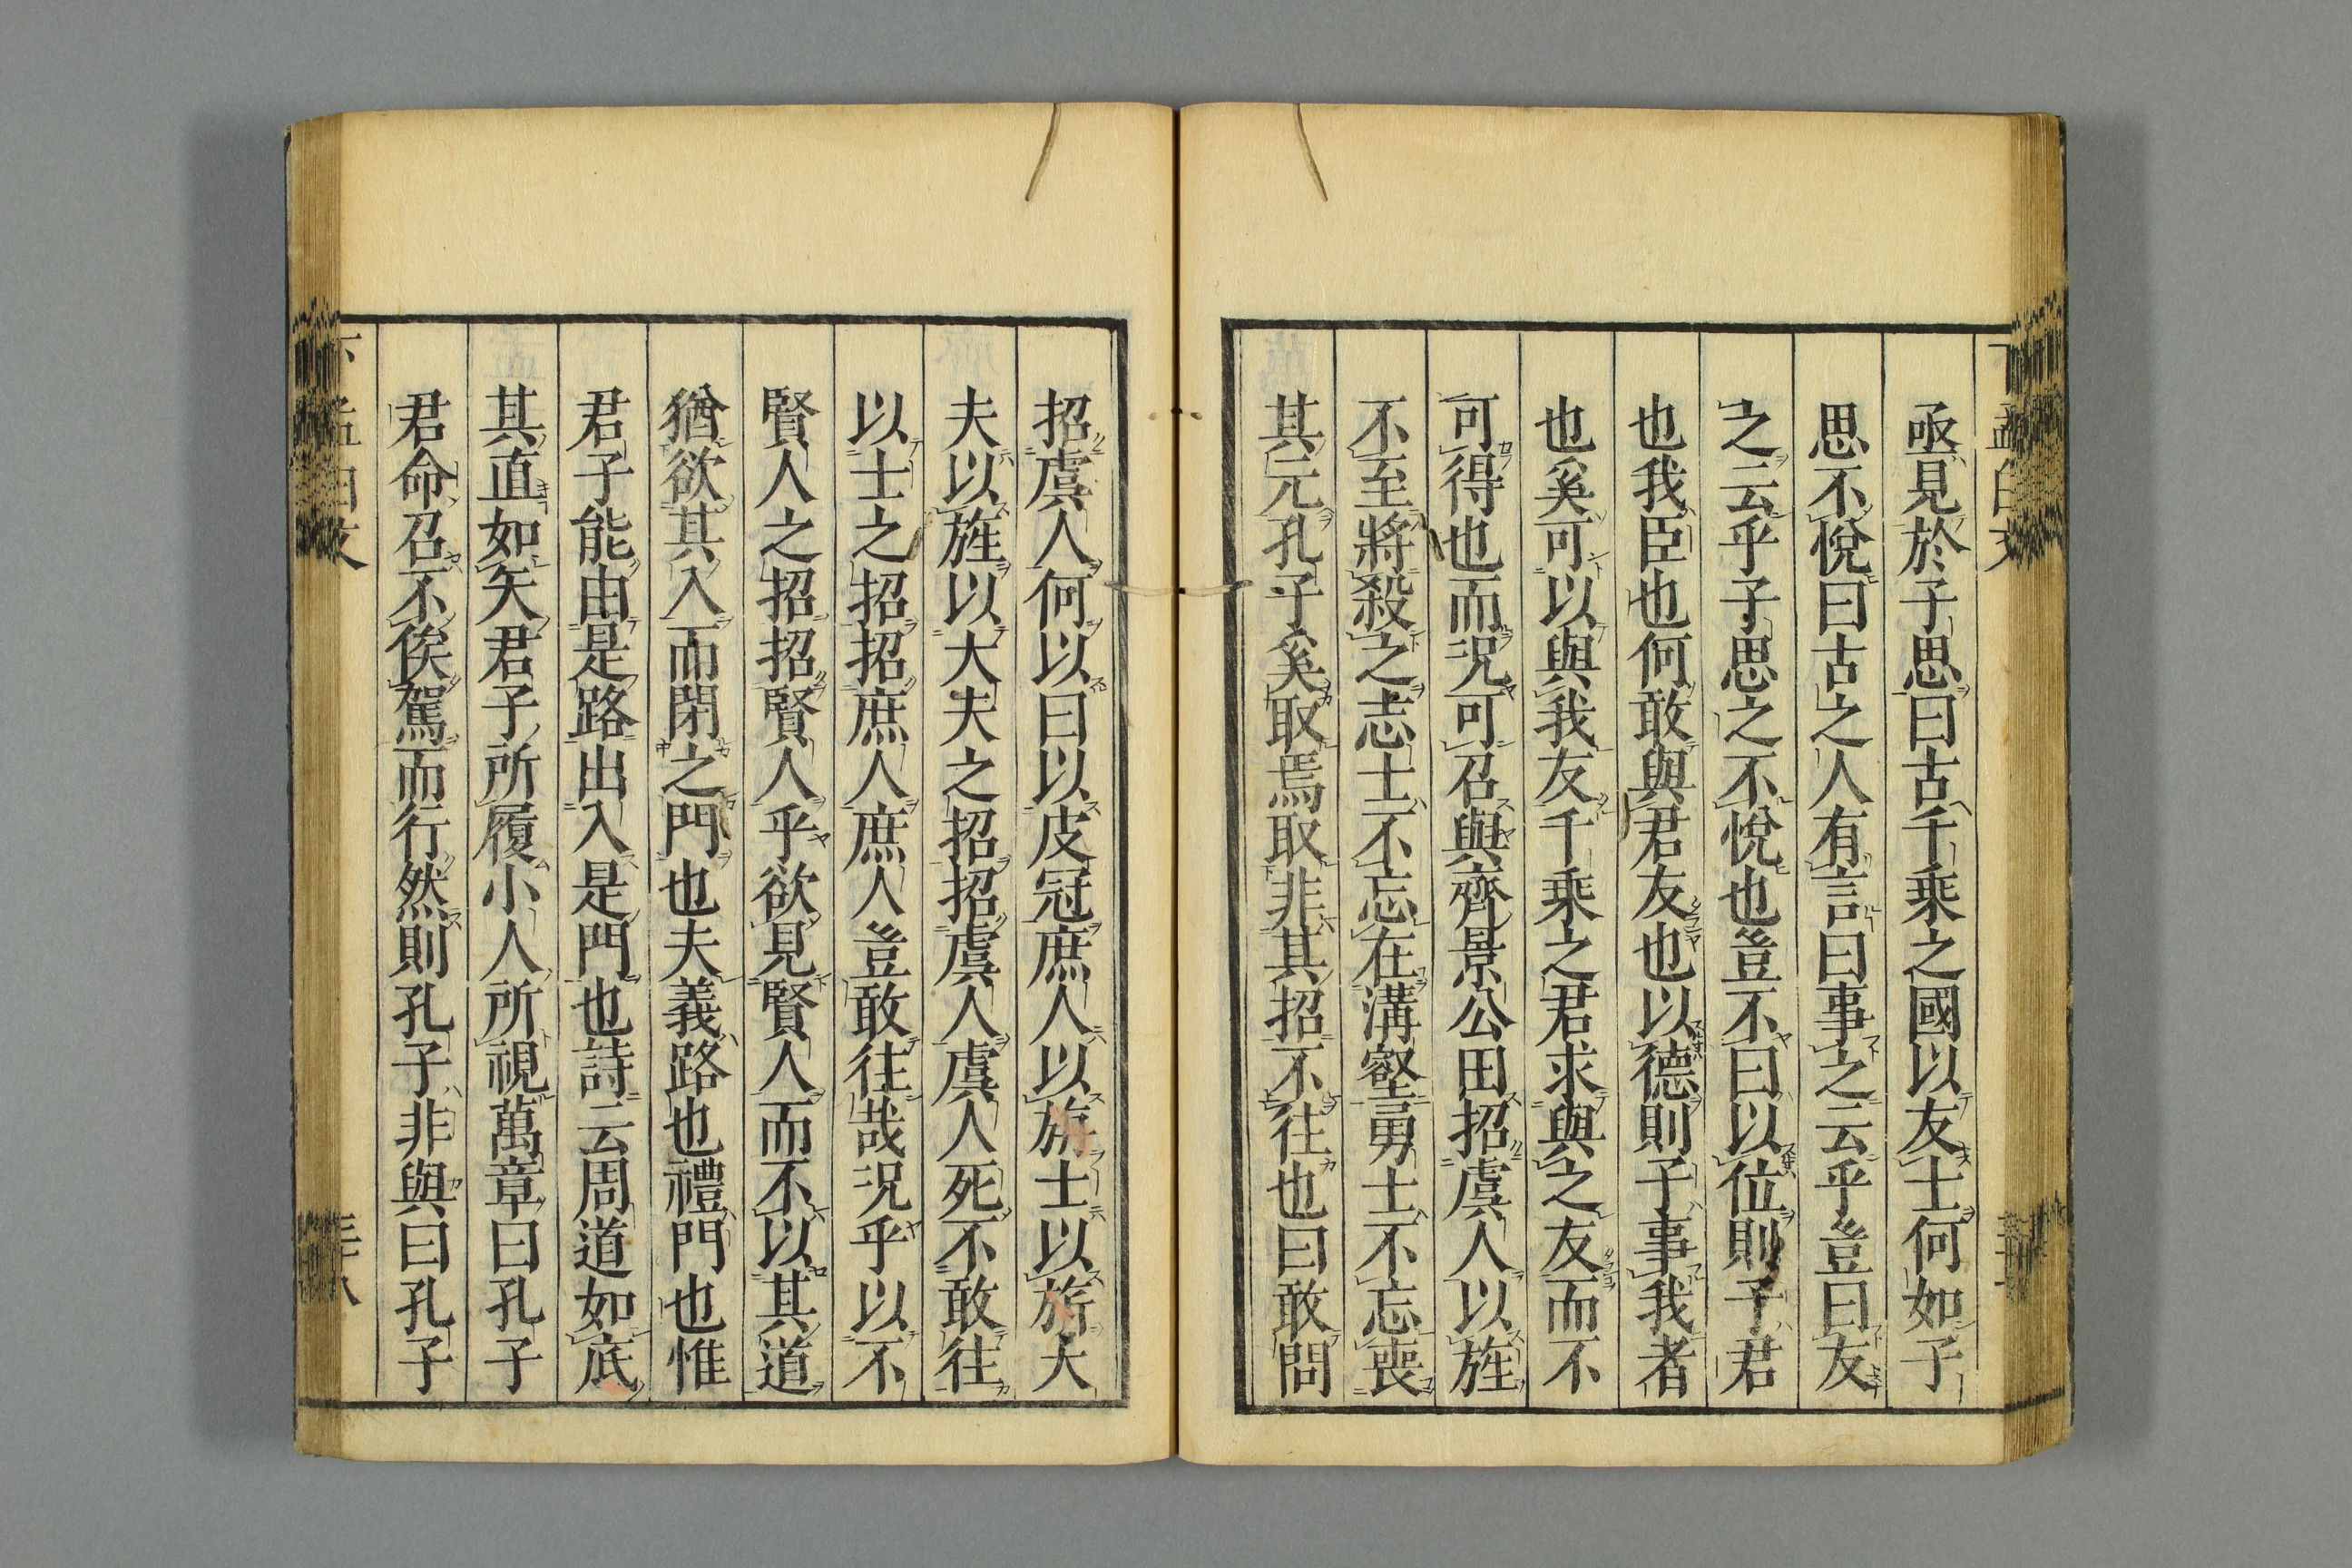 亟見於子思曰古千乘之國以友士何如子
思不悅曰古之人有言曰事之云乎豈曰友
之云乎子思之不悅也豈不曰以位則子君
也我臣也何敢與君友也以德則子事我者
也奚可以與我友千乘之君求與之友而不
可得也而況可召與齊景公田招虞人以旌
不至將殺之志士不忘在溝壑勇士不忘喪
其元孔子奚取焉取非其招不往也曰敢問
招虞人何以曰以皮冠庶人以旃士以旂大
夫以旌以大夫之招招虞人虞人死不敢往
以士之招招庶人庶人豈敢往哉況乎以不
賢人之招招賢人乎欲見賢人而不以其道
猶欲其入而閉之門也夫義路也禮門也惟
君子能由是路出入是門也詩云周道如底
其直如矢君子所履小人所視萬章曰孔子
君命召不俟駕而行然則孔子非與曰孔子